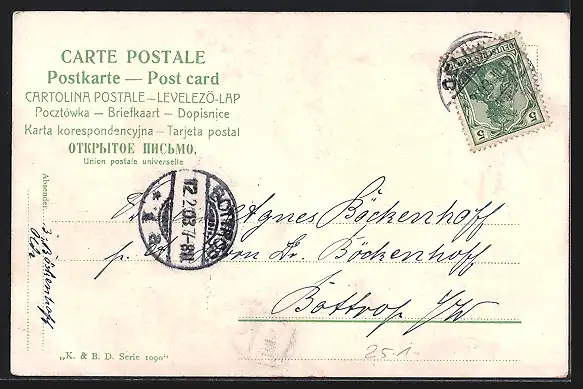 CARTE POSTALE
Postkarte — Post card
CARTOLINA POSTALE – LEVELEZŐ-LAP
Pocztówka – Briefkaart – Dopisnice
Karta korespondencyjna – Tarjeta postal
ОТКРЫТОЕ ПИСЬМО.
Union postale universelle
Absender:
Böckenhoff
5 5
BOTTROP
12.2.03. 7-8N
Agnes Böckenhoff
p. Dr. Böckenhoff
Bottrop i/W
„K. & B. D. Serie 1090"
251